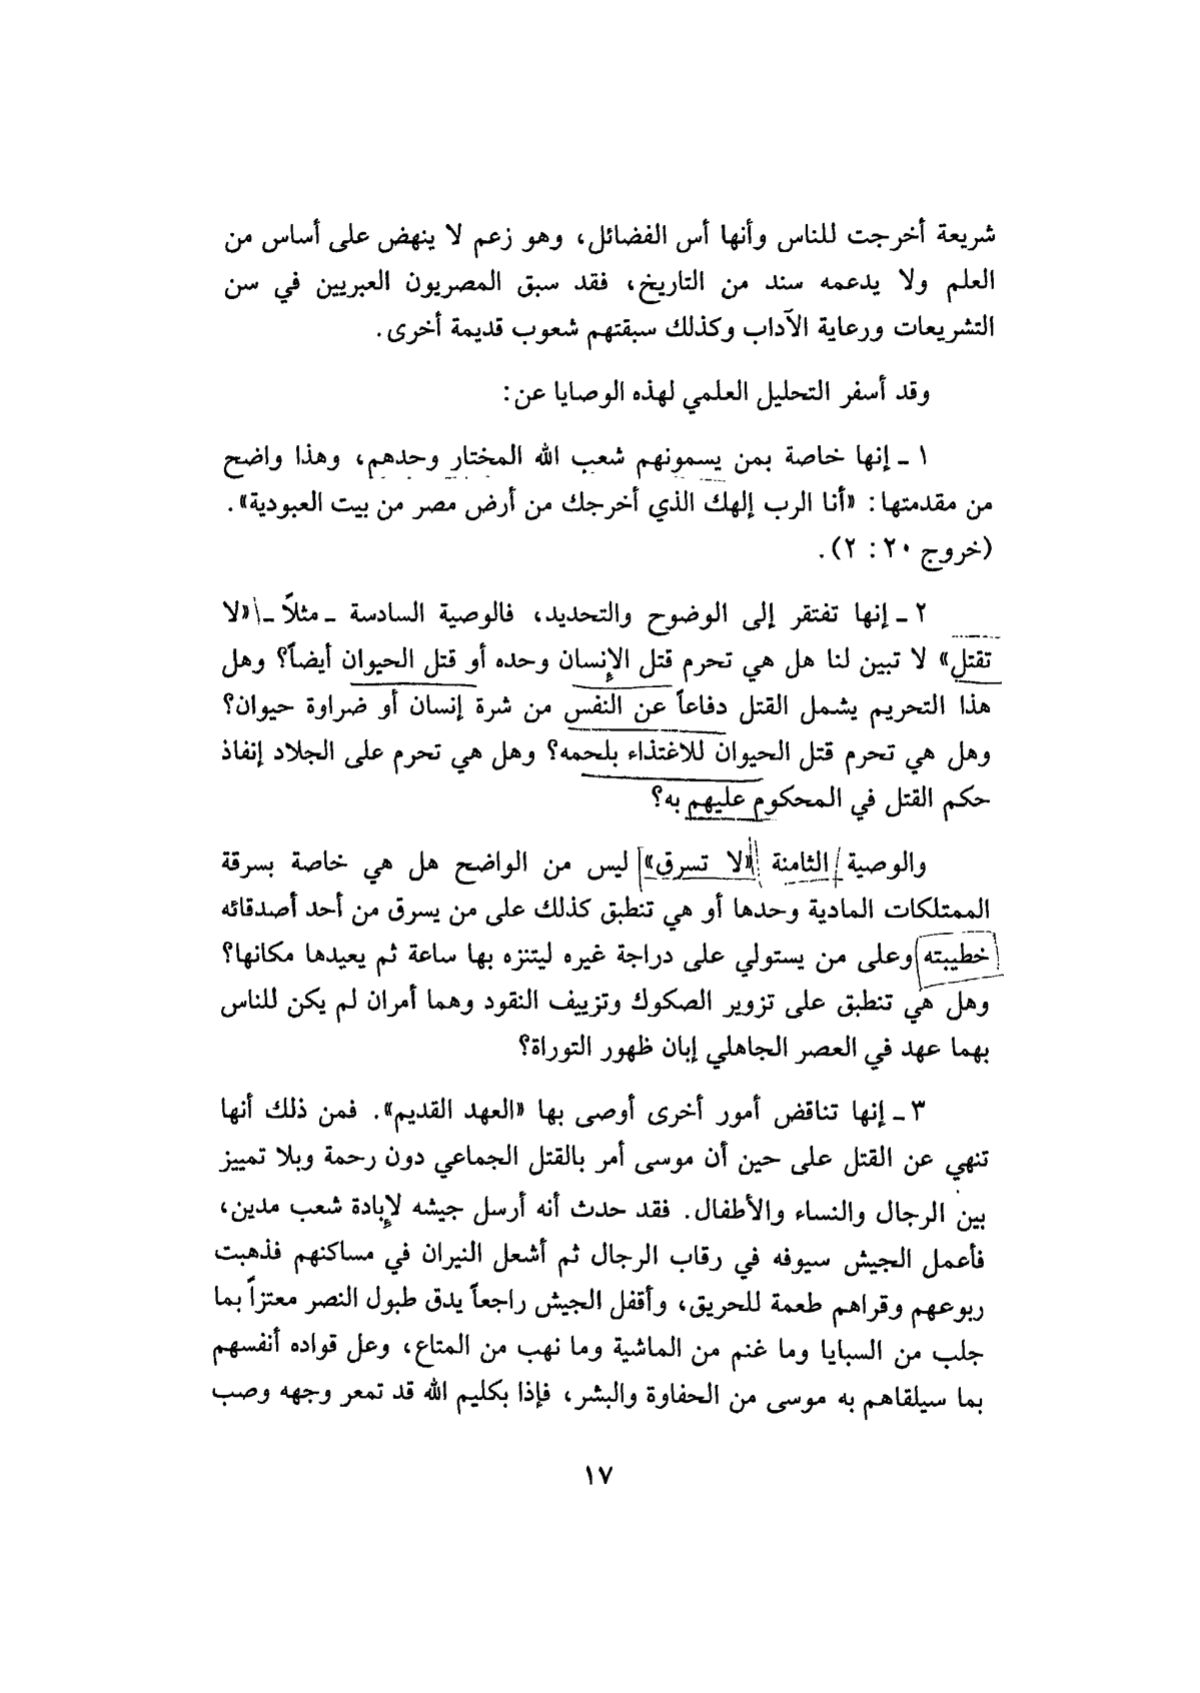 شريعة أخرجت للناس وأنها أس الفضائل، وهو زعم لا ينهض على أساس من
العلم ولا يدعمه سند من التاريخ، فقد سبق المصريون العبريين في سن
التشريعات ورعاية الآداب وكذلك سبقتهم شعوب قديمة أخرى.
وقد أسفر التحليل العلمي لهذه الوصايا عن:
١ ـ إنها خاصة بمن يسمونهم شعب الله المختار وحدهم، وهذا واضح
من مقدمتها: «أنا الرب إلهك الذي أخرجك من أرض مصر من بيت العبودية».
(خروج ٢٠: ٢).
٢ ـ إنها تفتقر إلى الوضوح والتحديد، فالوصية السادسة ـ مثلاً ـ «لا
تقتل» لا تبين لنا هل هي تحرم قتل الإنسان وحده أو قتل الحيوان أيضاً؟ وهل
هذا التحريم يشمل القتل دفاعاً عن النفس من شرة إنسان أو ضراوة حيوان؟
وهل هي تحرم قتل الحيوان للاغتذاء بلحمه؟ وهل هي تحرم على الجلاد إنفاذ
حكم القتل في المحكوم عليهم به؟
والوصية الثامنة «لا تسرق» ليس من الواضح هل هي خاصة بسرقة
الممتلكات المادية وحدها أو هي تنطبق كذلك على من يسرق من أحد أصدقائه
خطيبته وعلى من يستولي على دراجة غيره ليتنزه بها ساعة ثم يعيدها مكانها؟
وهل هي تنطبق على تزوير الصكوك وتزييف النقود وهما أمران لم يكن للناس
بهما عهد في العصر الجاهلي إبان ظهور التوراة؟
٣ ـ إنها تناقض أمور أخرى أوصى بها «العهد القديم». فمن ذلك أنها
تنهي عن القتل على حين أن موسى أمر بالقتل الجماعي دون رحمة وبلا تمييز
بين الرجال والنساء والأطفال. فقد حدث أنه أرسل جيشه لإبادة شعب مدين،
فأعمل الجيش سيوفه في رقاب الرجال ثم أشعل النيران في مساكنهم فذهبت
ربوعهم وقراهم طعمة للحريق، وأقفل الجيش راجعاً يدق طبول النصر معتزاً بما
جلب من السبايا وما غنم من الماشية وما نهب من المتاع، وعل قواده أنفسهم
بما سيلقاهم به موسى من الحفاوة والبشر، فإذا بكليم الله قد تمعر وجهه وصب
١٧